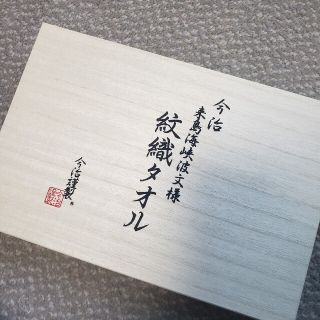 今治
来島海峡波文様
紋織タオル
今治謹製。